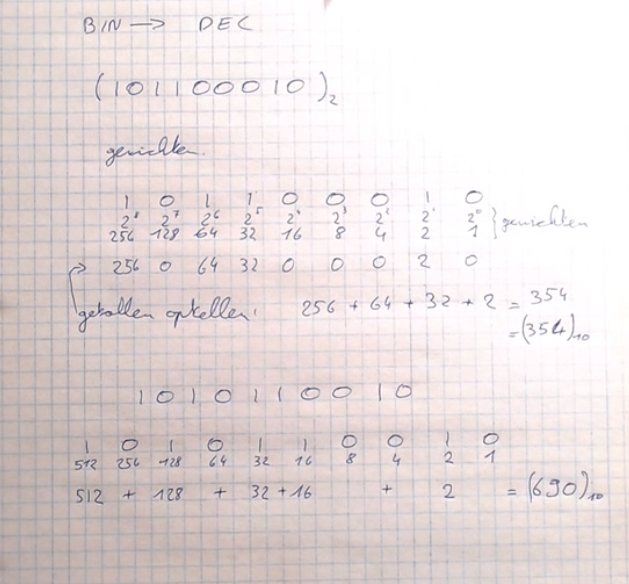 BIN → DEC
(101100010)₂
gewichten.
1 0 1 1 0 0 0 1 0
2⁸ 2⁷ 2⁶ 2⁵ 2⁴ 2³ 2² 2¹ 2⁰ } gewichten
256 128 64 32 16 8 4 2 1
256 0 64 32 0 0 0 2 0
getallen optellen: 256 + 64 + 32 + 2 = 354
=(354)₁₀
1 0 1 0 1 1 0 0 1 0
1 0 1 0 1 1 0 0 1 0
512 256 128 64 32 16 8 4 2 1
512 + 128 + 32 + 16 + 2 = (690)₁₀